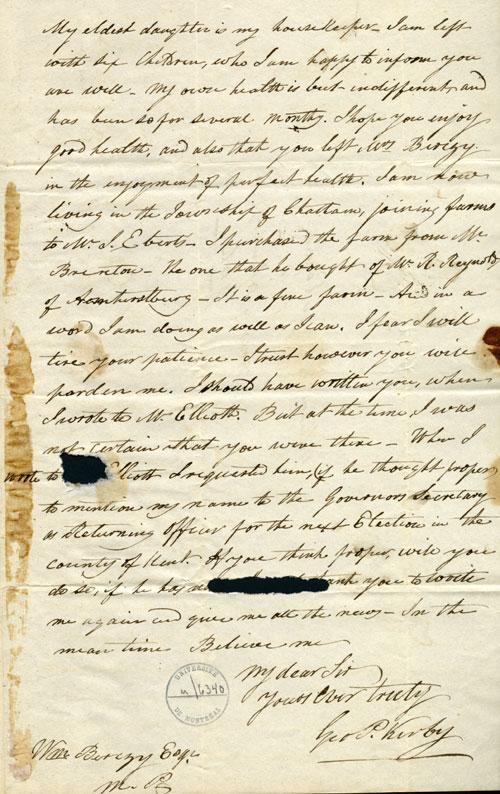 My eldest daughter is my housekeeper - I am left
with six children, who I am happy to inform you
are well - My own health is but indifferent, and
has been so for several months. I hope you enjoy
good health, and also that you left Mrs Berczy
in the enjoyment of perfect health. I am now
living in the Township of Chatham, joining farms
to Mr. J. Eberts - I purchased the farm from Mr
Brenton - the one that he bought of Mr. R. Reynold
of Aomherstburg - It is a fine farm - And in a
word I am doing as well as I can. I fear I will
tire your patience - I trust however you will
parden me. I should have written you, when
I wrote to Mr. Elliott. But at the time, I was
not certain that you were there - When I
wrote to Elliott I requested him, (if he thought proper
to mention my name to the Governors Secretary
as Returning Officer for the next Election in the
county of Kent. If you think proper, will you
do so, if he has you to write
me again and give me all the news - In the
mean time Believe me
My dear Sir
Yours Ever truly
Geo P. Kerby
UNIVERSITÉ
6340
DE MONTRÉAL
Wm Berczy Esqr
M.P.